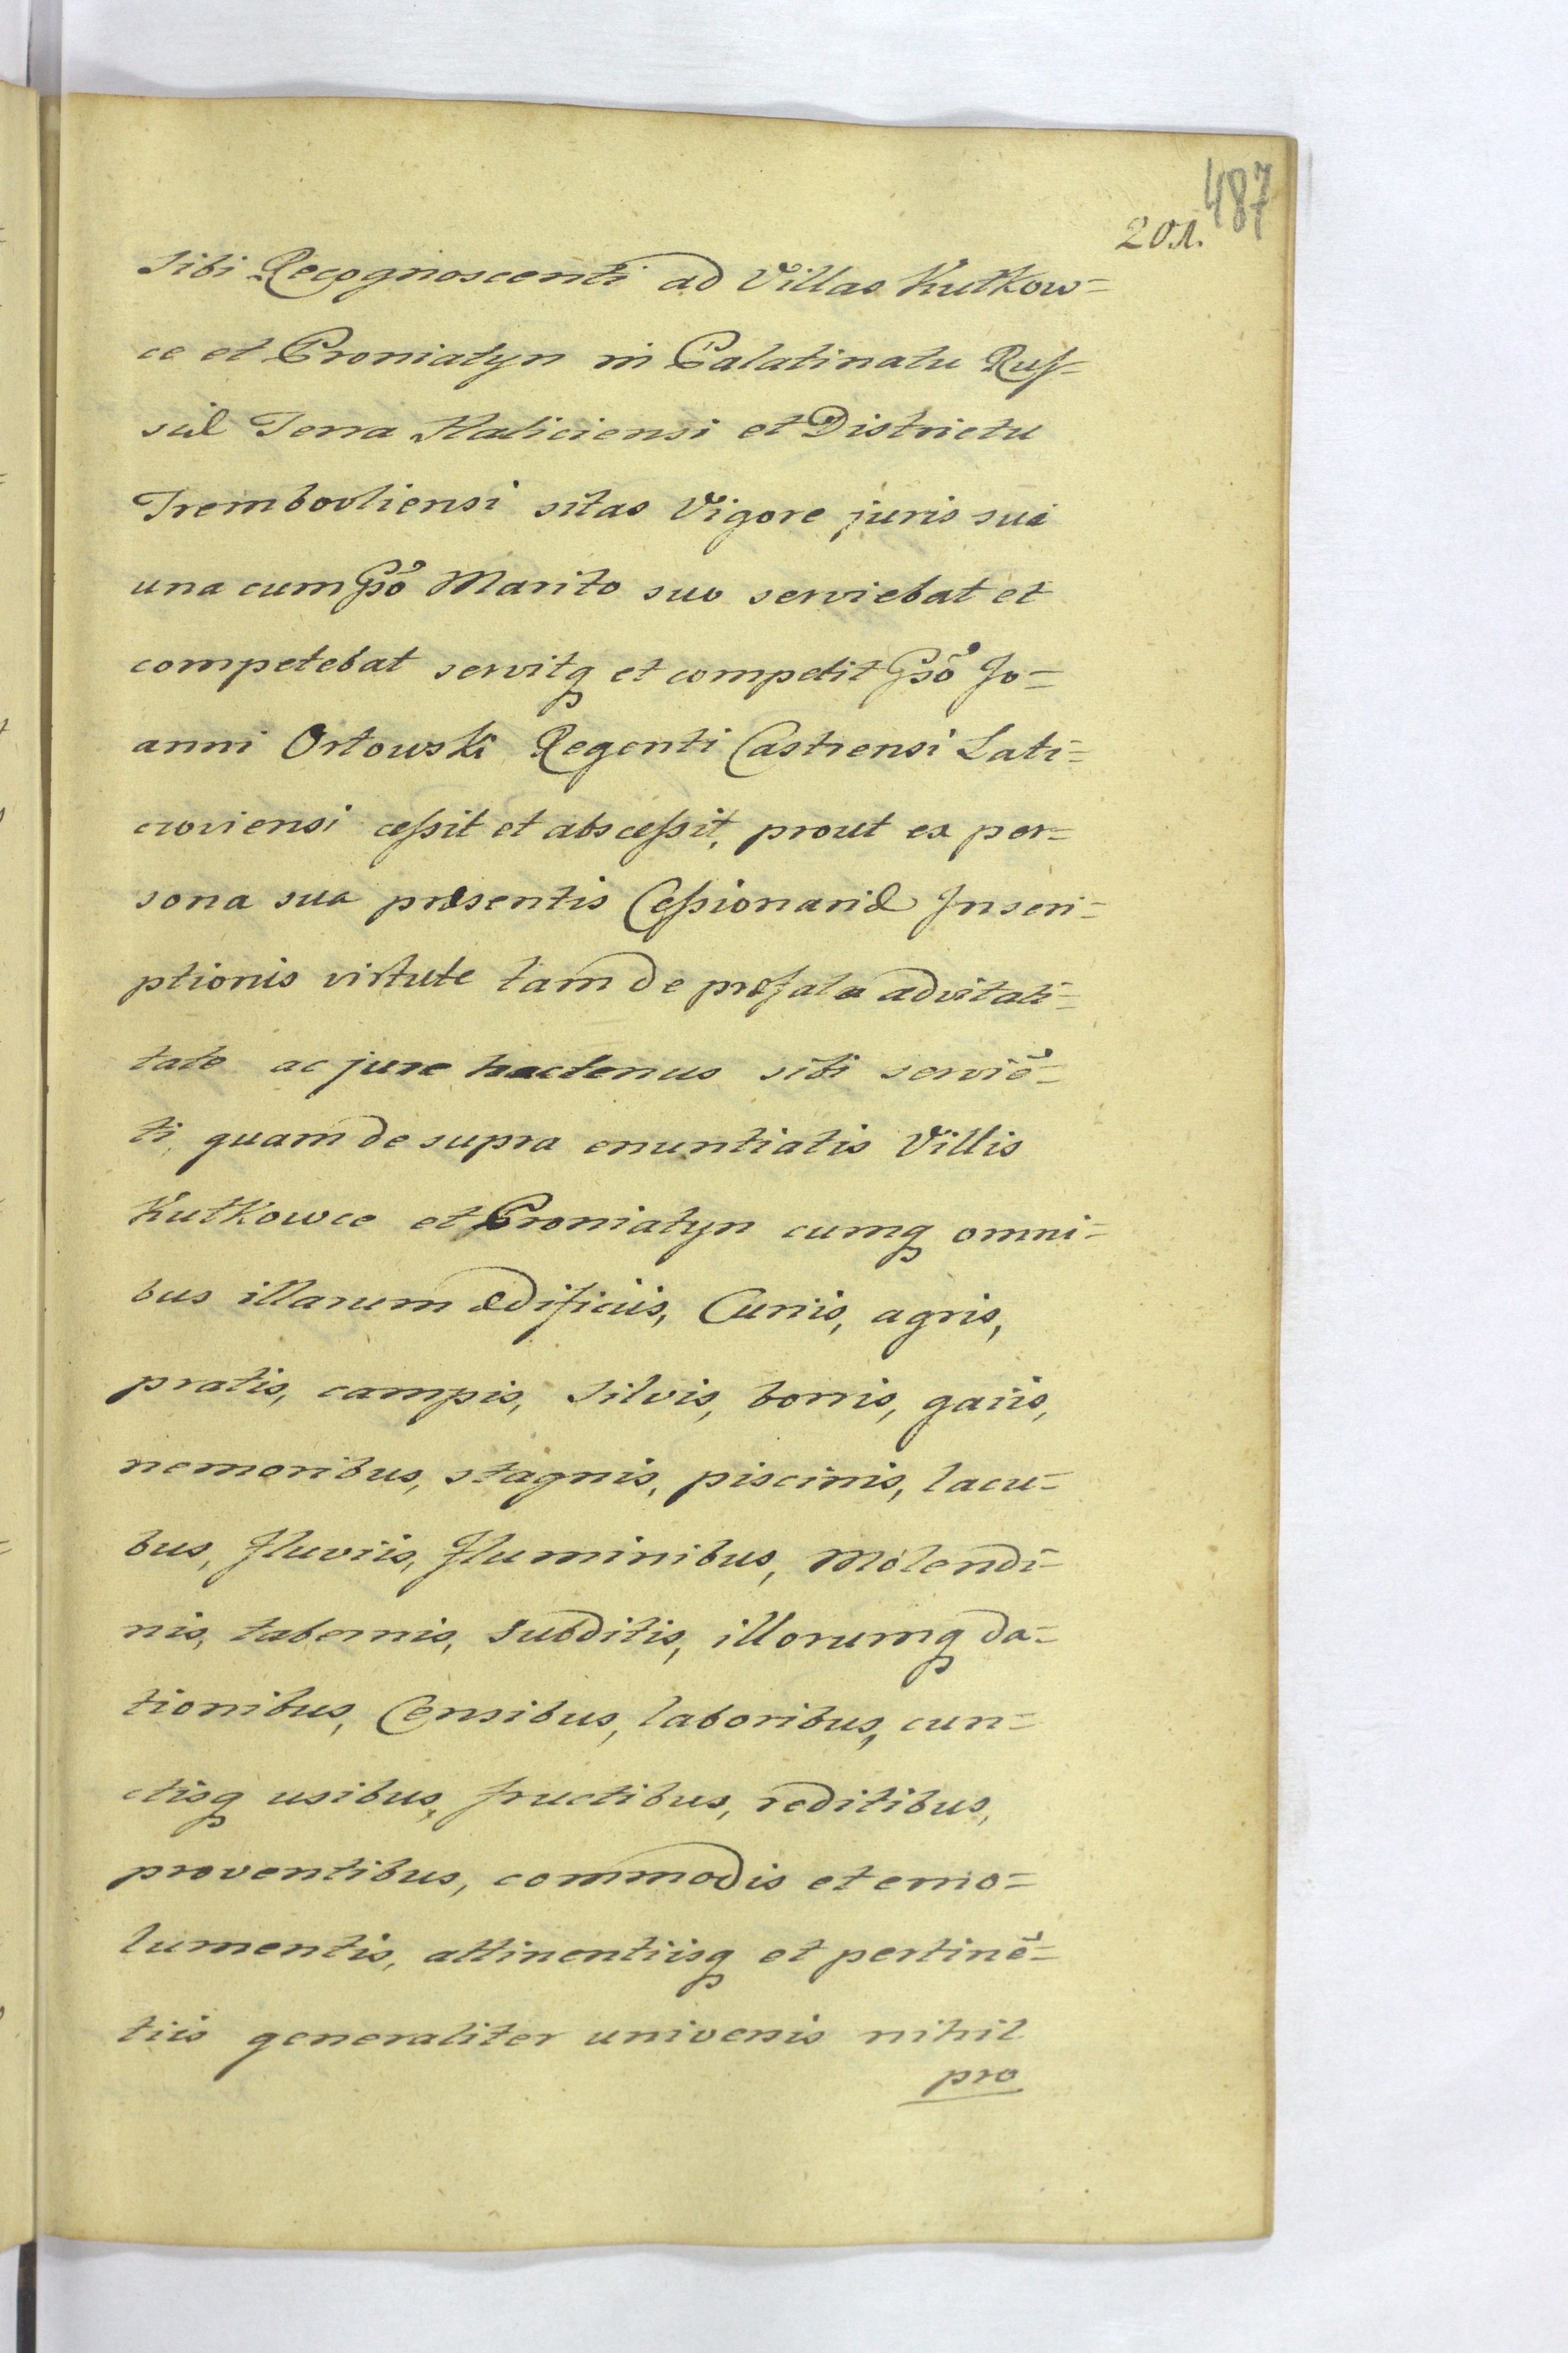 487
201.
Sibi Recognoscenti ad Villas Kutkow=
ce et Proniatyn in Palatinatu Rus=
siæ Terra Haliciensi et Districtu
Trembovliensi sitas Vigore juris sui
una cum Gsõ Marito suo serviebat et
competebat servitq et competit Gsõ Jo=
anni Orłowski Regenti Castrensi Lati=
croviensi cessit et abscessit, prout ex per=
sona sua præsentis Cessionariæ Inscri=
ptionis virtute tam de præfata advitali=
tate ac jure hactenus sibi serviẽ=
ti, quam de supra enuntiatis Villis
Kutkowce et Proniatyn cumq omni=
bus illarum ædificiis, Curiis, agris,
pratis, campis, Silvis, borris, gaiis,
nemoribus, stagnis, piscinis, lacu=
bus, fluviis, fluminibus, Molendi=
nis, tabernis, subditis, illorumq da=
tionibus, Censibus, laboribus, cun=
ctisq usibus, fructibus, reditibus,
proventibus, commodis et emo=
lumentis, attinentiisq et pertinẽ=
tiis generaliter universis nihil
pro